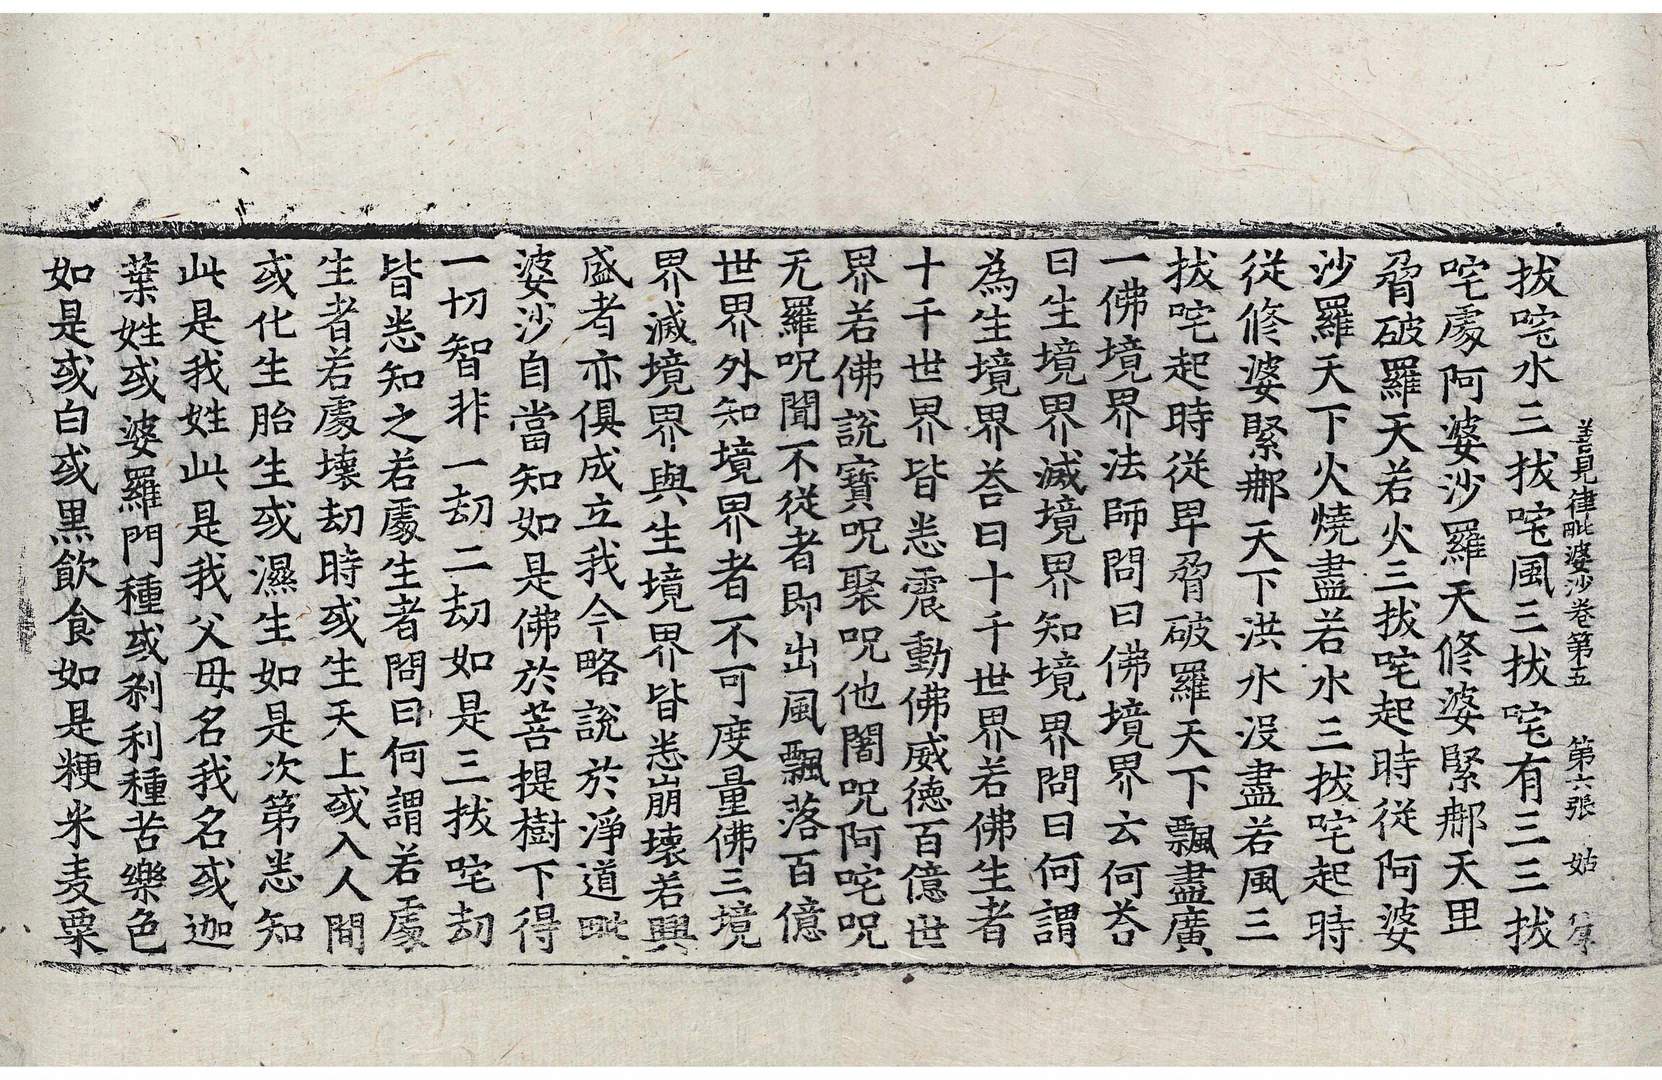 善見律毗婆沙卷第五　第六張　姑
拔咤水三拔咤風三拔咤有三三拔
咤處阿婆沙羅天修婆緊那天毘
脅破羅天若火三拔咤起時從阿婆
沙羅天下火燒盡若水三拔咤起時
從修婆緊那天下洪水沒盡若風三
拔咤起時從卑脅破羅天下飄盡廣
一佛境界法師問曰佛境界云何荅
曰生境界滅境界知境界問曰何謂
為生境界荅曰十千世界若佛生者
十千世界皆悉震動佛威德百億世
界若佛說寶呪聚呪他闍呪阿咤呪
无羅呪聞不從者即出風飄落百億
世界外知境界者不可度量佛三境
界滅境界與生境界皆悉崩壞若興
盛者亦俱成立我今略說於淨道毗
婆沙自當知如是佛於菩提樹下得
一切智非一劫二劫如是三拔咤劫
皆悉知之若處生者問曰何謂若處
生者若處壞劫時或生天上或入人間
或化生胎生或濕生如是次第悉知
此是我姓此是我父母名我名或迦
葉姓或婆羅門種或刹利種苦樂色
如是或白或黑飲食如是粳米麦粟